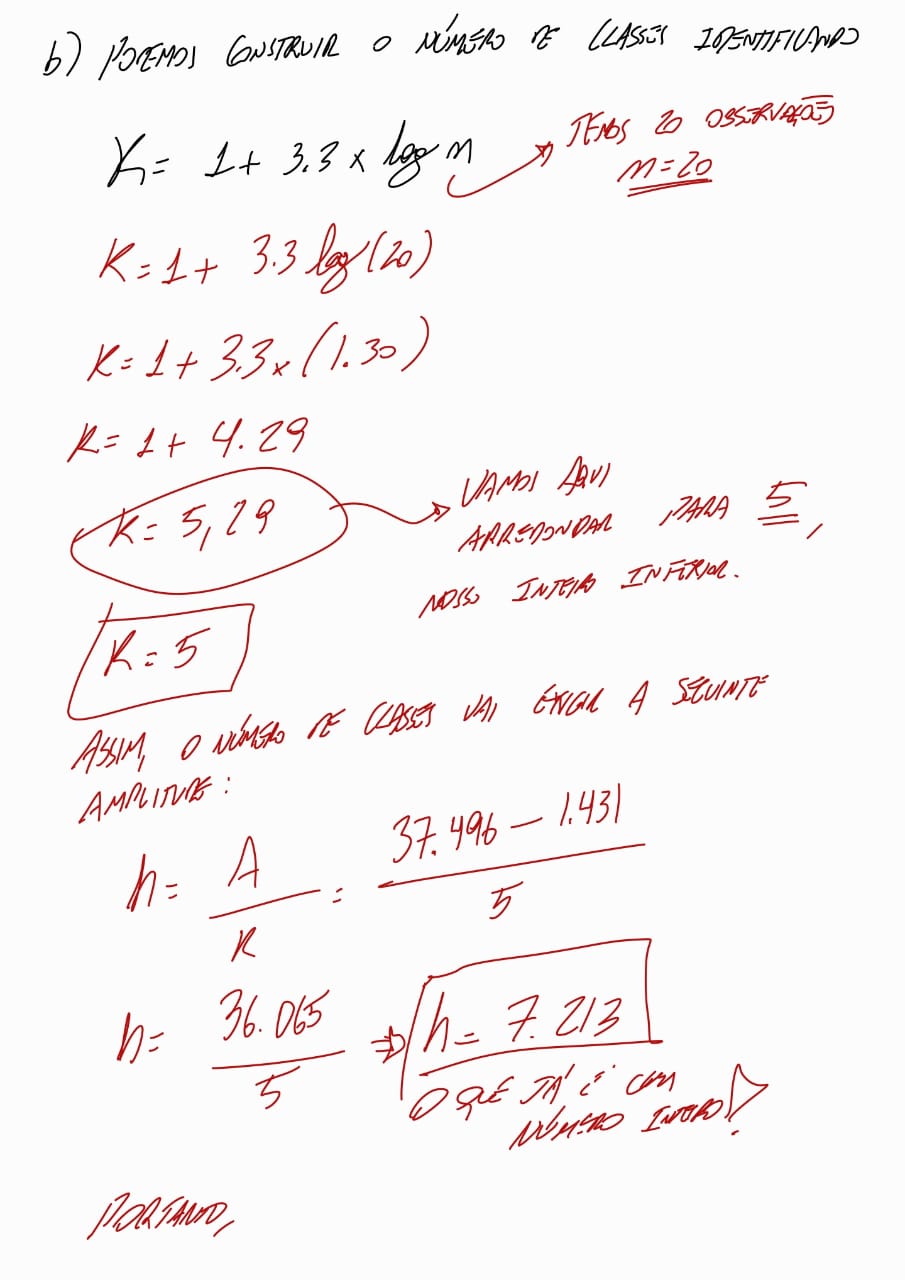 b) PODEMOS CONSTRUIR O NÚMERO DE CLASSES IDENTIFICANDO
K = 1 + 3.3 x log n → TEMOS 20 OBSERVAÇÕES
n = 20
K = 1 + 3.3 log (20)
K = 1 + 3.3 x (1.30)
K = 1 + 4.29
K = 5,29 → VAMOS AQUI
ARREDONDAR PARA 5,
NOSSO INTEIRO INFERIOR.
K = 5
ASSIM, O NÚMERO DE CLASSES VAI EXIGIR A SEGUINTE
AMPLITUDE:
h = A/K = 37.496 - 1.431/5
h = 36.065/5 ⇒ h = 7.213
O QUE JÁ É COM
NÚMERO INTEIRO!
PORTANTO,